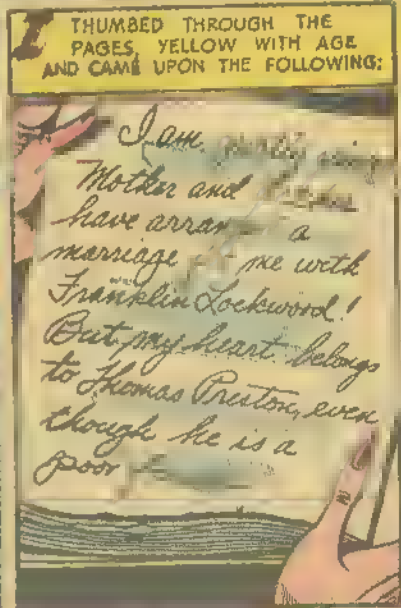 I THUMBED THROUGH THE
PAGES, YELLOW WITH AGE
AND CAME UPON THE FOLLOWING:
I am
Mother and
have a
marriage me with
Franklin Lockwood!
But my heart belongs
to Thomas Preston, even
though he is a
poor